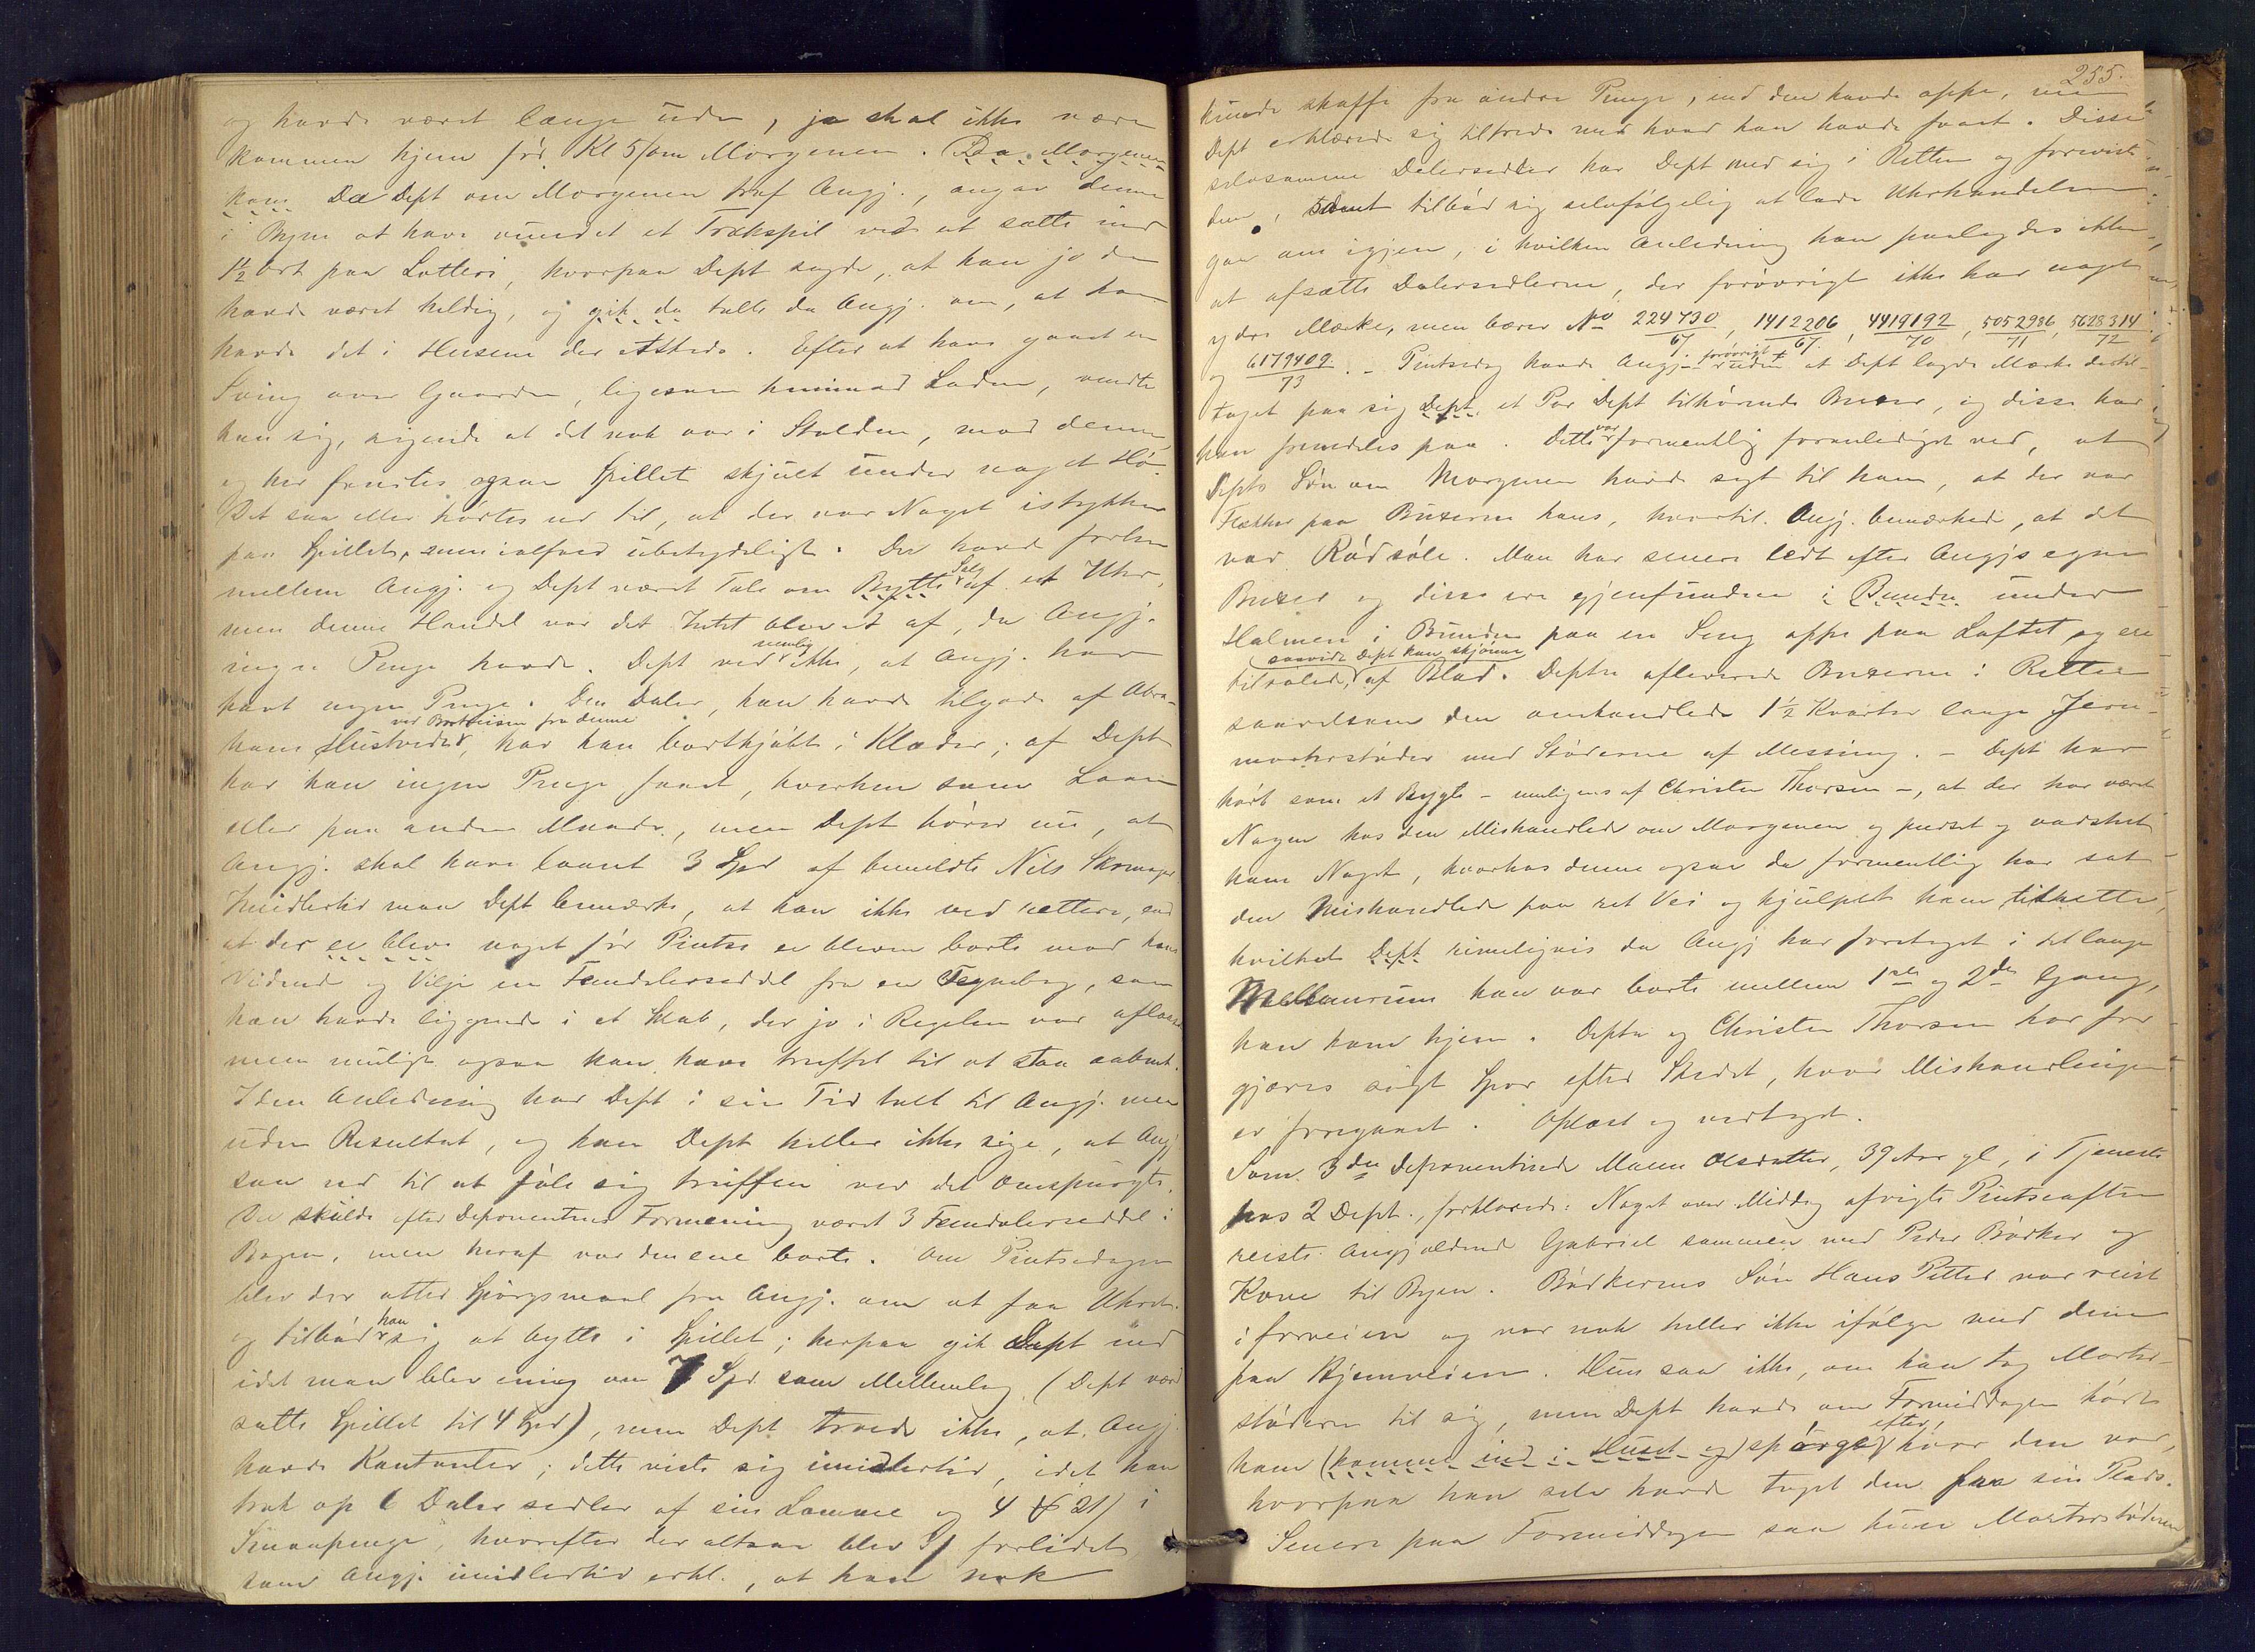 og havde været længe ude, ja skal ikke være
kommen hjem før Kl 5 om Morgenen. Da Morgenen
kom Da Dept om Morgenen traf Angj., angav denne
i Byen at have vundet et Trækspil ved at sætte ind
1½ ort paa Lotteri, hvorpaa Dept sagde, at han jo da
havde været heldig, og gik da talte da Angj. om, at han
havde det i Husene der etsteds. Efter at have gaaet en
Sving over Gaarden, ligesom henimod Laden, vendte
han sig, sigende at det nok var i Stalden, mod denne,
og her fandtes ogsaa Spillet skjult under noget Hø.
Det saa eller hørtes ud til, at der var Noget istykker
paa Spillet, men ialfald ubetydeligt. Der havde forhen
mellem Angj. og Dept været Tale om Bytte Salg af et Uhr,
men denne Handel var det Intet blevet af, da Angj.
ingen Penge havde. Dept ved nemlig ikke, at Angj. har
havt nogen Penge. Den Daler, han havde tilgode af Abra-
ham Hustvedt ved Bortreisen fra denne, har han bortkjøbt i Klæder; af Dept
har han ingen Penge faaet, hverken som Laan
eller paa anden Maade, men Dept hører nu, at
Angj. skal have laant 3 Spd af bemeldte Nils Skomager
Imidlertid maa Dept bemærke, at han ikke ved rettere, end
at der er blev noget før Pintse er bleven borte mod hans
Vidende og Vilje en Femdalerseddel fra en Tegnebog, som
han havde liggende i et Skab, der jo i Regelen var aflaaset
men muligt ogsaa kan have truffet til at staa aabent.
I den Anledning har Dept i sin Tid talt til Angj. men
uden Resultat, og kan Dept heller ikke sige, at Angj
saa ud til at føle sig truffen ved det omspurgte.
Der skulde efter Deponentens Formening været 3 Femdalerseddel i
Bogen, men heraf var den ene borte. Om Pintsedagen
blev der atter Spørgsmaal fra Angj. om at faa Uhret
og tilbød han sig at bytte i Spillet; herpaa gik Dept ind
idet man blev enig om 7 Spd. som Mellemlag (Dept værd
satte Spillet til 4 Spd), men Dept troede ikke, at Angj
havde Kontanter; dette viste sig imidlertid, idet han
trak op 6 Daler sedler af sin Lomme og 4 21 i
Smaapenge, hvorefter der altsaa blev forlidet,
som Angj. imidlertid erkl., at han nok
255.
kunde skaffe fra andre Penge, end den havde oppe, men
Dept erklærede sig tilfreds med hvad han havde faaet. Disse
selvsamme Dalersedler har Dept med sig i Retten og foreviste
dem, samt tilbød sig selvfølgelig at lade Uhrhandelen
gaa om igjen, i hvilken Anledning han paalagdes ikke
at afsætte Dalersedlerne, der forøvrigt ikke har noget
ydre Mærke, men bærer No 224730/67, 1412206/67, 4419192/70, 5052986/71, 5628314/72
og 6179409/73. – Pintsedag havde Angj. forøvrigt uden at Dept lagde Mærke dertil
taget paa sig Dept. et Par Dept tilhørende Buxer, og disse har
han fremdeles paa. Dette var formentlig foranlediget ved, at
Depts Søn om Morgenen havde sagt til ham, at der var
Flækker paa Buxerne hans, hvortil Angj. bemærkede, at det
var Rødsøle. Man har senere ledt efter Angj's egne
Buxer og disse ere gjenfundne i Bunden under
Halmen i Bunden paa en Seng oppe paa Loftet og ere
tilsølede, saavidt Dept kan skjønne af Blod. Deptn afleverede Buxerne i Retten
saavelsom den omhandlede 1½ Kvarter lange Jern-
morterstøder med Støderne af Messing. – Dept har
hørt som et Rygte – muligens af Christen Thorsen –, at der har været
Nogen hos den Mishandlede om Morgenen og pudset og vadsket
ham Noget, hvorhos denne ogsaa da formentlig har sat
den Mishandlede paa ret Vei og hjulpet ham tilrette,
hvilket Dept rimeligvis da Angj har foretaget i det lange
Mellemrum han var borte mellem 1ste og 2den Gang,
han kom hjem. Deptn og Christen Thorsen har for-
gjæves søgt Spor efter Stedet, hvor Mishandlingen
er foregaaet. Oplæst og vedtaget.
Som 3die Deponentinde Maren Olsdatter, 39 Aar gl, i Tjeneste
hos 2 Dept., forklarede: Noget over Middag afvigte Pintseaften
reiste Angjældende Gabriel sammen med Peder Bødker og
Kone til Byen. Bødkerens Søn Hans Petter var reist
i forveien og var nok heller ikke ifølge med dem
paa Hjemveien. Hun saa ikke, om han tog Morter-
støderen til sig, men Dept havde om Formiddagen hørt
ham (komme ind i Huset og) spørge efter, hvor den var,
hvorpaa han selv havde taget den fra sin Plads.
Senere paa Formiddagen saa hun Morterstøderen